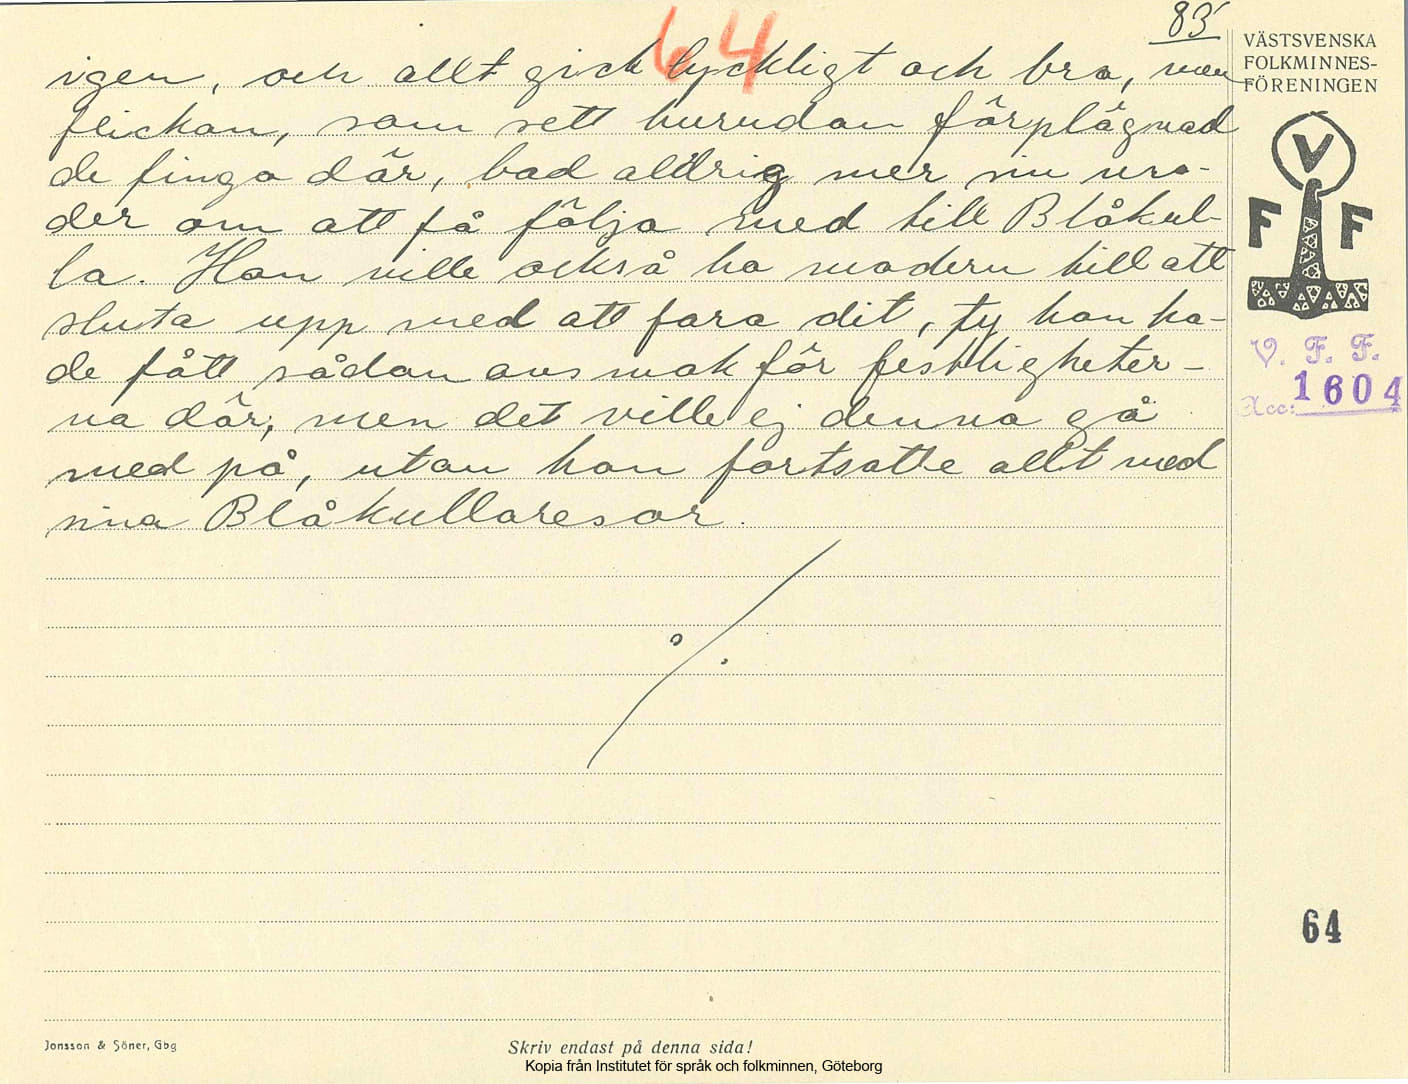 64
83
VÄSTSVENSKA
FOLKMINNES-
FÖRENINGEN
igen, och allt gick lyckligt och bra, men
flickan, som sett hurudan förplägnad
de finga där, bad aldrig mer sin mo-
der om att få följa med till Blåkul-
la. Hon ville också ha modern till att
sluta upp med att fara dit, ty hon ha-
de fått sådan avsmak för festligheter-
na där, men det ville ej denna gå
med på, utan hon fortsatte allt med
sina Blåkullaresor.
V
F F
V. F. F.
Acc: 1604
64
Jonsson & Söner, Gbg
Skriv endast på denna sida!
Kopia från Institutet för språk och folkminnen, Göteborg